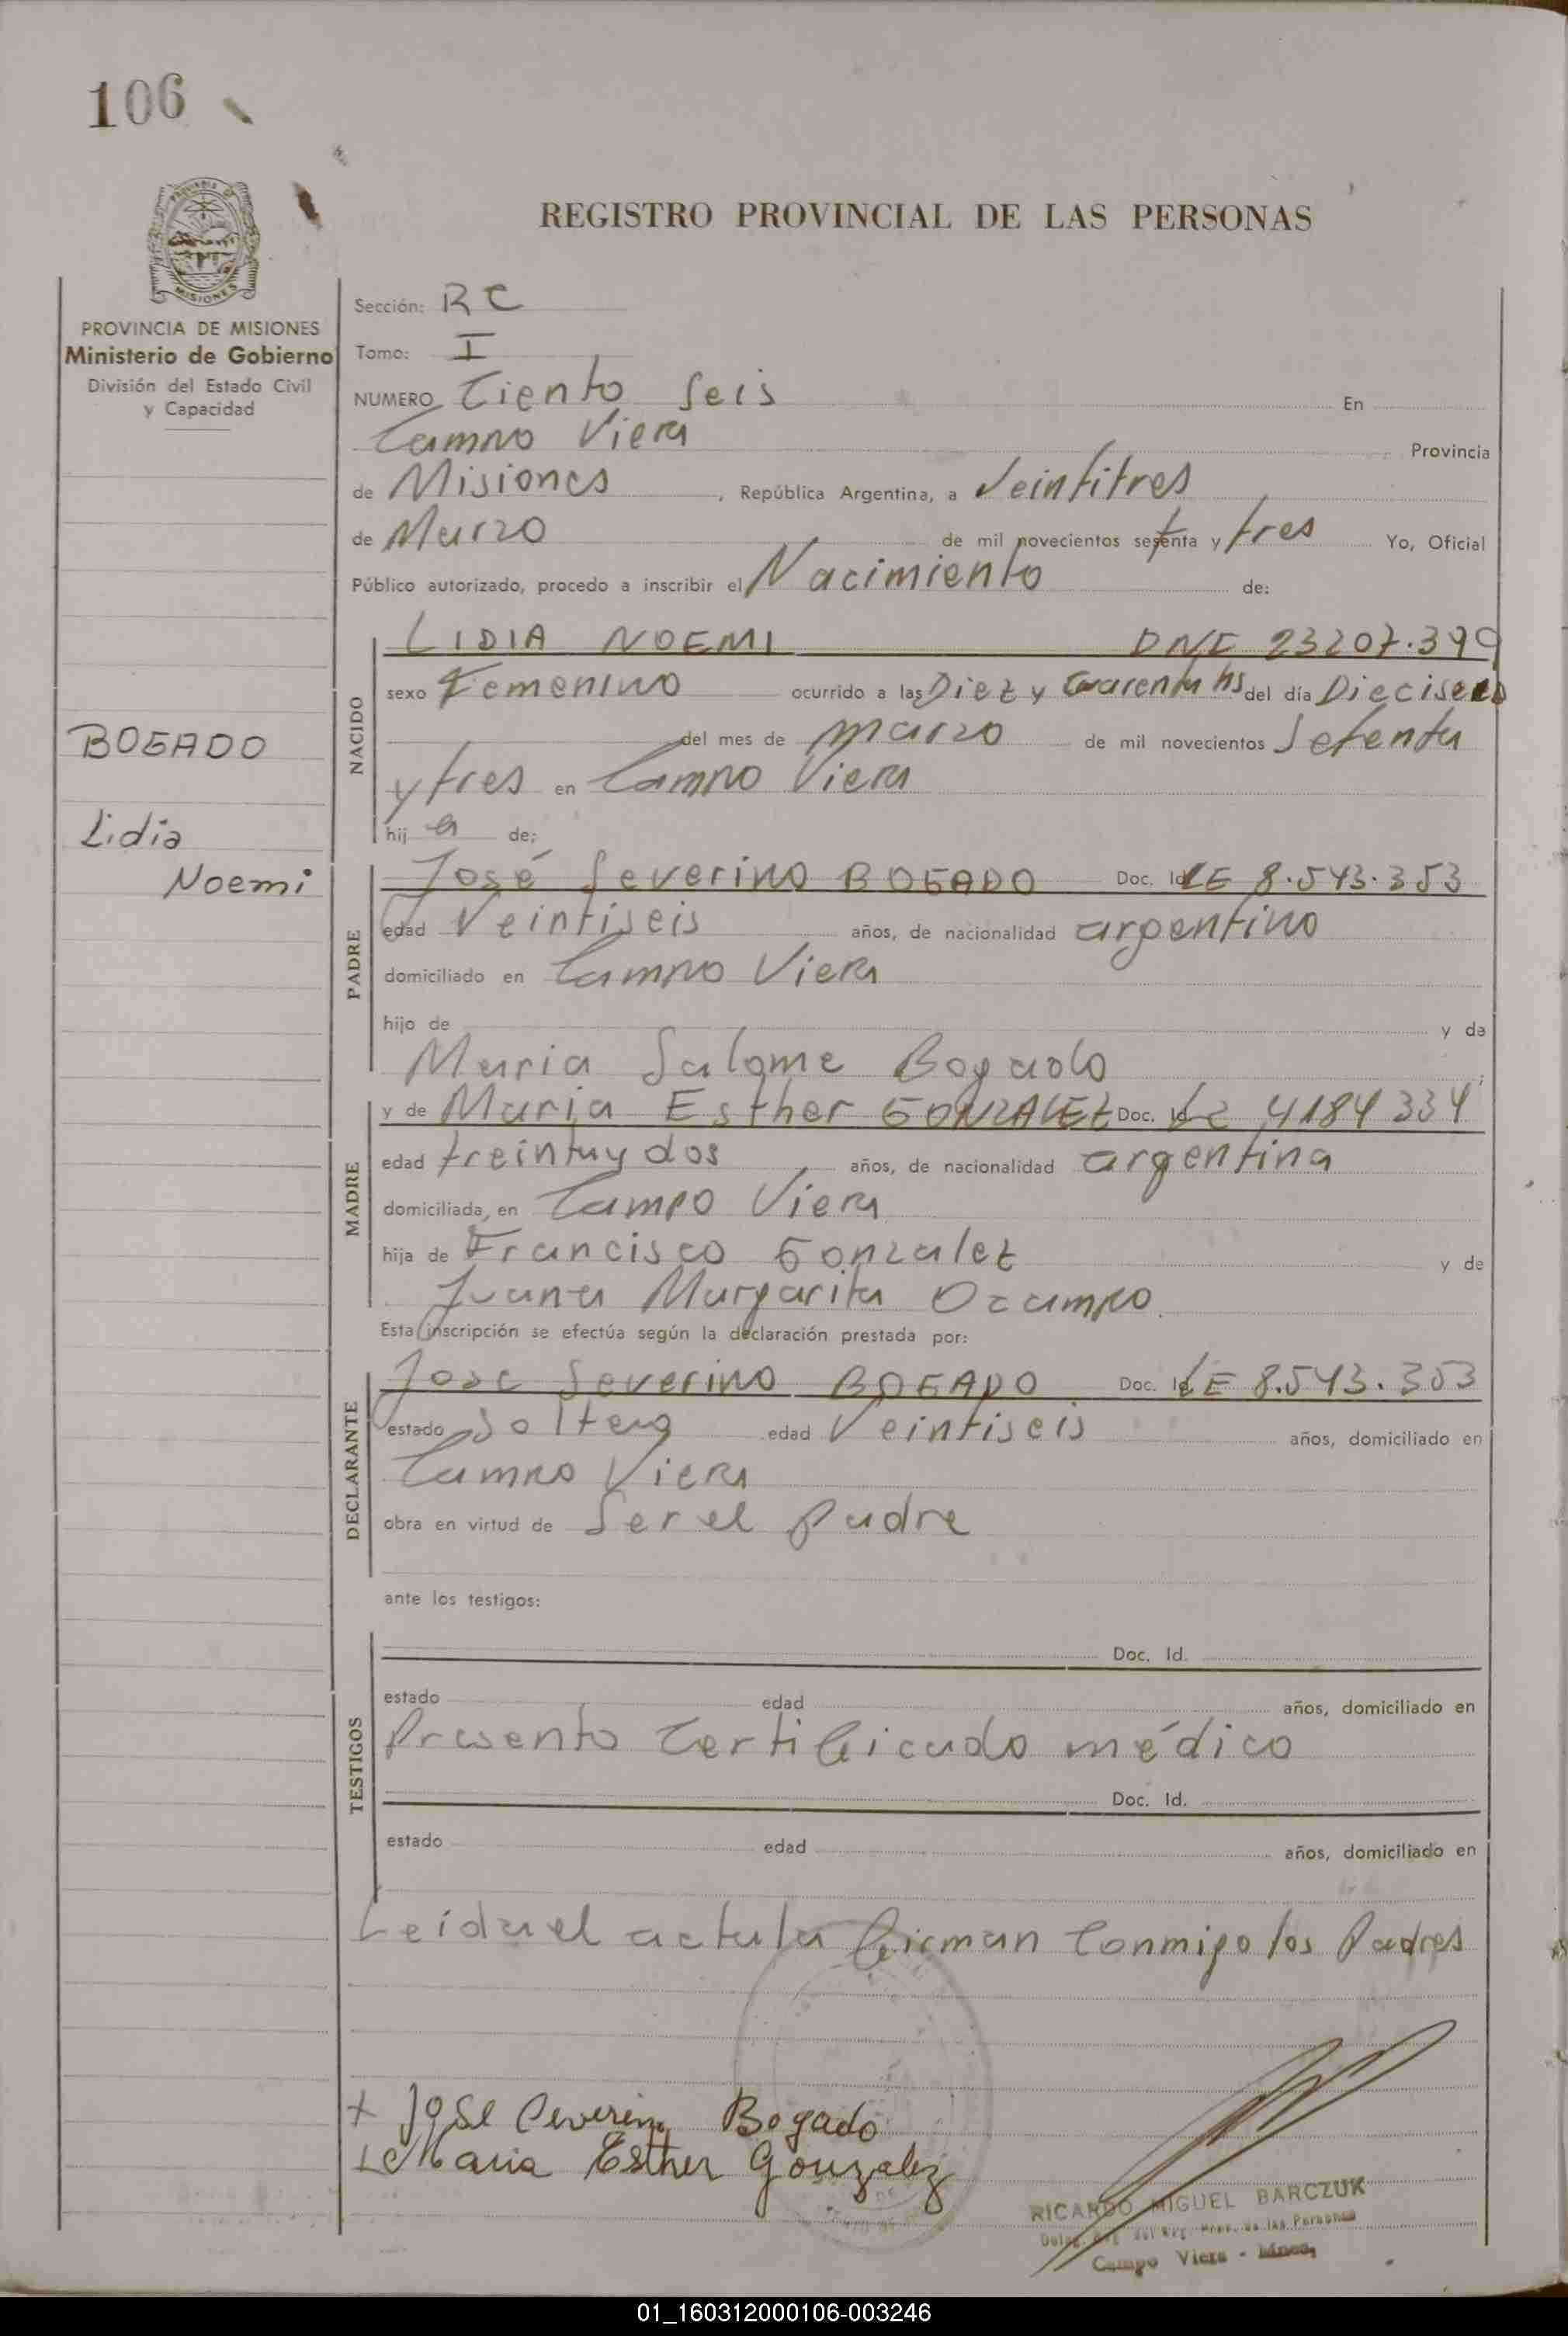 106
REGISTRO PROVINCIAL DE LAS PERSONAS
PROVINCIA DE MISIONES
MISIONES
PROVINCIA DE MISIONES
Ministerio de Gobierno
División del Estado Civil
y Capacidad
BOGADO
Lidia
Noemi
Sección: RC
Tomo: I
NUMERO Ciento Seis En
Campo Viera Provincia
de Misiones, República Argentina, a Veintitres
de Marzo de mil novecientos setenta y tres Yo, Oficial
Público autorizado, procedo a inscribir el Nacimiento de:
NACIDO
LIDIA NOEMI DNI 23207.399
sexo Femenino ocurrido a las Diez y Cuarenta hs del día
del mes de marzo de mil novecientos Setenta
y tres en Campo Viera
hij a de;
PADRE
José Severino BOGADO Doc. Id. LE 8.543.353
edad Veintiseis años, de nacionalidad argentino
domiciliado en Campo Viera
hijo de y de
Maria Salome Bogado ;
MADRE
y de Maria Esther GONZALEZ Doc. Id. LC 4184334
edad treinta y dos años, de nacionalidad argentina
domiciliada, en Campo Viera
hija de Francisco Gonzalez y de
Juana Margarita Ocampo.
Esta inscripción se efectúa según la declaración prestada por:
DECLARANTE
Jose Severino BOGADO Doc. Id. LE 8.543.353
estado Soltero edad Veintiseis años, domiciliado en
Campo Viera
obra en virtud de Ser el padre
ante los testigos:
TESTIGOS
Doc. Id.
estado edad años, domiciliado en
Presento Certificado médico
Doc. Id.
estado edad años, domiciliado en
Leida el acta la firman Conmigo los Padres
x Jose Ceverino Bogado
Maria Esther Gonzalez
RICARDO MIGUEL BARCZUK
Reg. Prov. de las Personas
Campo Viera - Mnes.
01_160312000106-003246